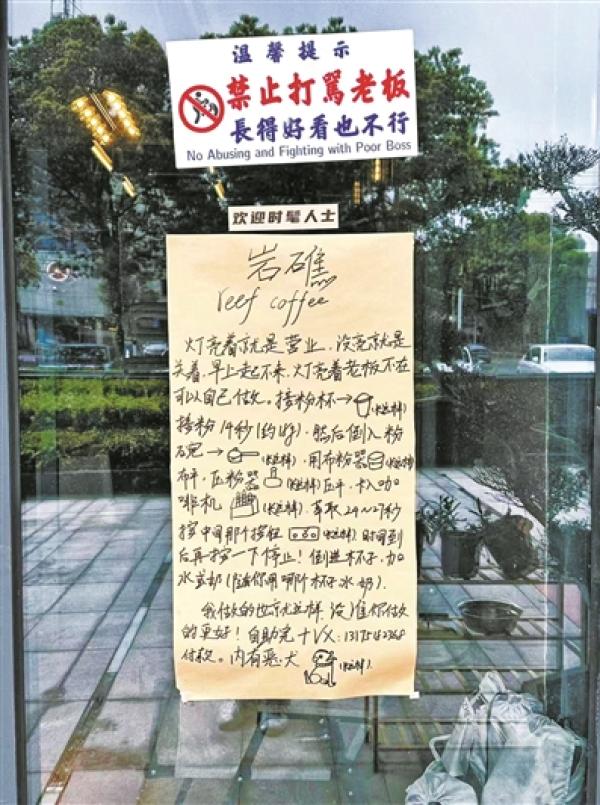 温馨提示
禁止打罵老板
長得好看也不行
No Abusing and Fighting with Poor Boss
欢迎时髦人士
岩礁
reef coffee
灯亮着就是营业,没亮就是
关着,早上起不来,灯亮着老板不在
可以自己做。接粉杯→(长这样)
接粉14秒(约18g),然后倒入粉
碗→(长这样),用布粉器(长这样)
布平,压粉器(长这样)压平,卡入咖
啡机(长这样),萃取24~27秒
按中间那个按钮(长这样),时间到
后再按一下停止!倒进杯子,加
水或奶(随你用哪个杯子、水、奶).
我做的也就这样,没准你做
的更好!自助完+VX:
付款。内有恶犬(长这样).